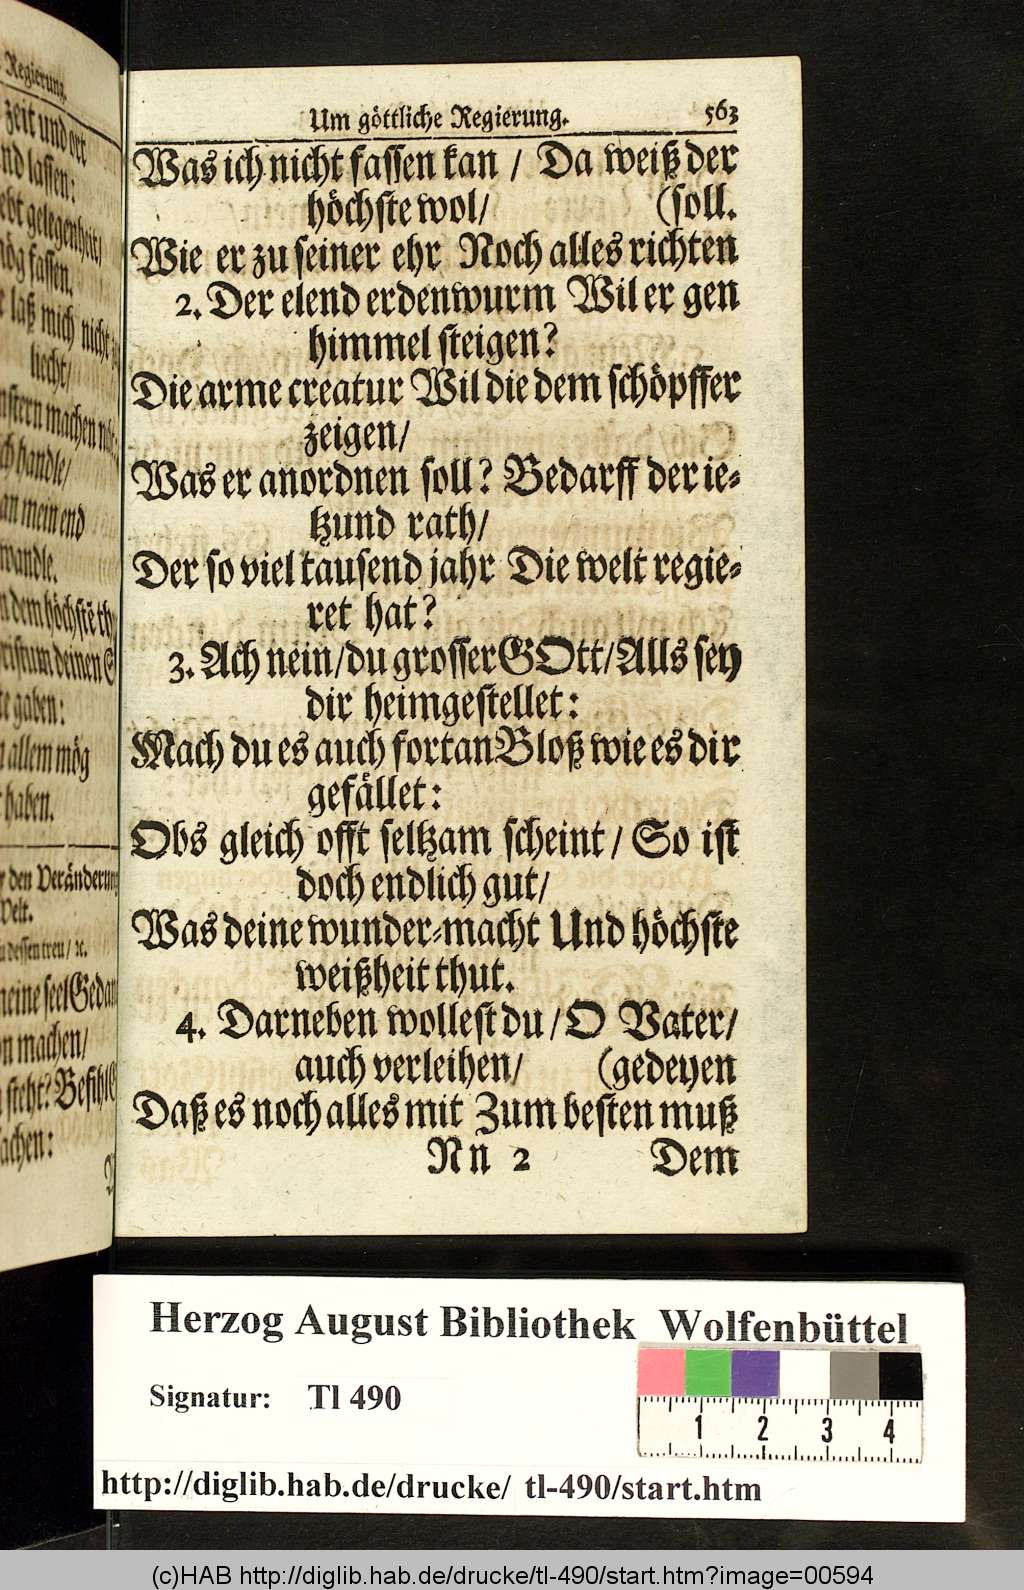 Regierung.
zeit und ort
nd lassen:
ebt gelegenheit/
mög fassen.
laß mich nicht
licht/
nstern machen
ch handle/
an mein end
wandle.
dem höchstē
ristum deinen
te gaben:
allem mög
haben.
den Veränderung
Welt.
dessen treu/ ꝛc.
meine seel Gedan
machen/
steht? Befihl
achen:
Um göttliche Regierung. 563
Was ich nicht fassen kan / Da weiß der
höchste wol/ (soll.
Wie er zu seiner ehr Noch alles richten
2. Der elend erdenwurm Wil er gen
himmel steigen?
Die arme creatur Wil die dem schöpffer
zeigen/
Was er anordnen soll? Bedarff der ie-
tzund rath/
Der so viel tausend jahr Die welt regie-
ret hat?
3. Ach nein/du grosser GOtt/Alls sey
dir heimgestellet:
Mach du es auch fortan Bloß wie es dir
gefället:
Obs gleich offt seltzam scheint / So ist
doch endlich gut/
Was deine wunder-macht Und höchste
weißheit thut.
4. Darneben wollest du / O Vater/
auch verleihen/ (gedeyen
Daß es noch alles mit Zum besten muß
Nn 2 Dem
Herzog August Bibliothek Wolfenbüttel
Signatur: Tl 490
1 2 3 4
http://diglib.hab.de/drucke/ tl-490/start.htm
(c)HAB http://diglib.hab.de/drucke/tl-490/start.htm?image=00594